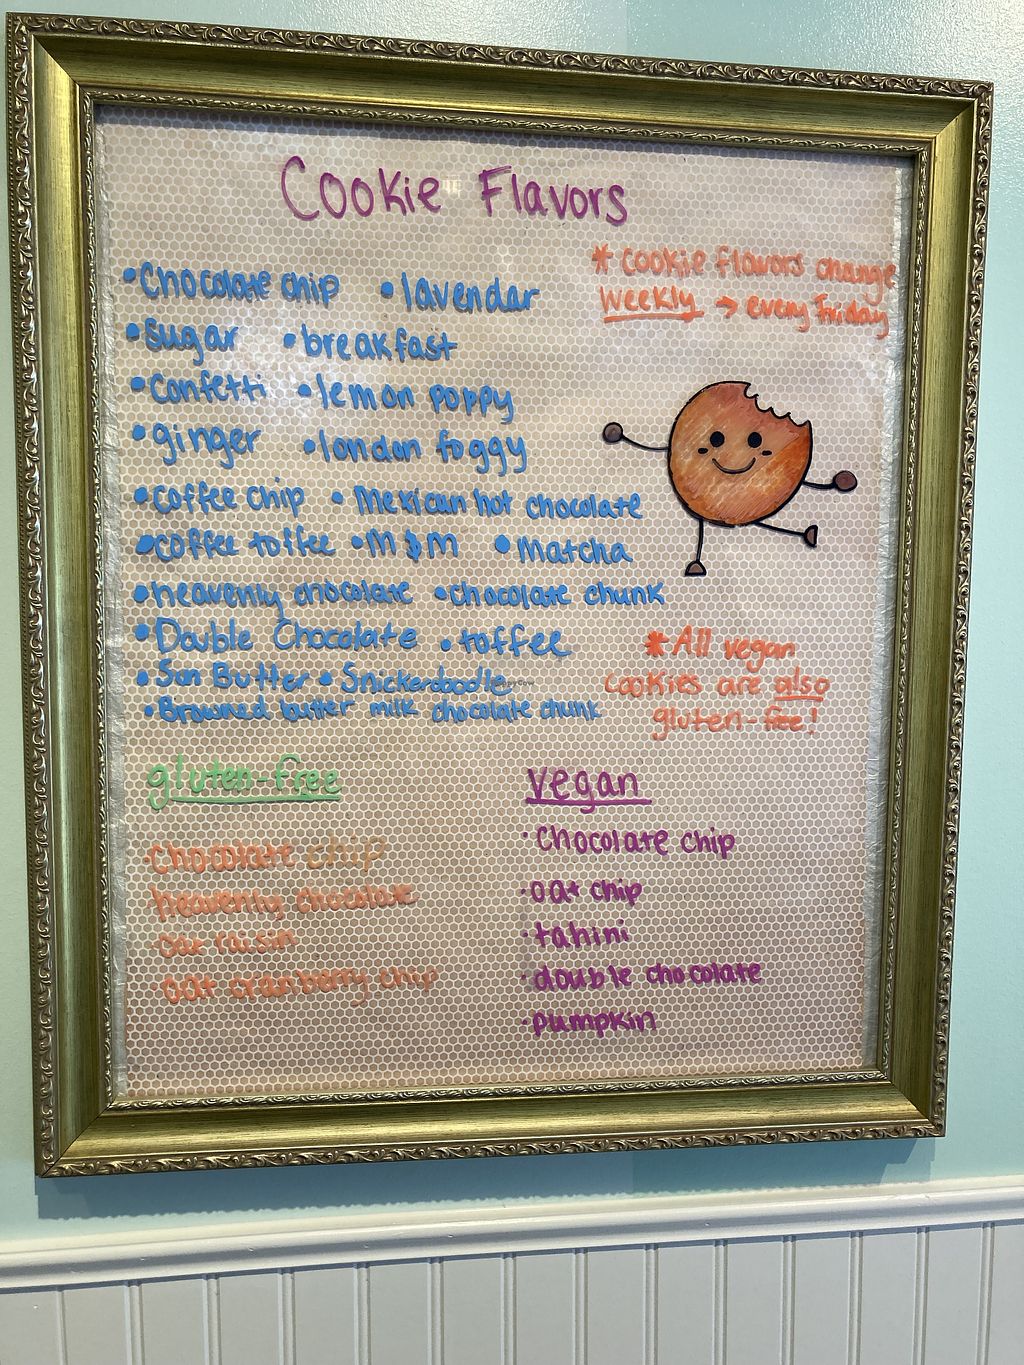 Cookie Flavors
* cookie flavors change
weekly → every Friday
• Chocolate chip • lavendar
• sugar • breakfast
• Confetti • lemon poppy
• ginger • london foggy
• coffee chip • Mexican hot chocolate
• coffee toffee • M & M • Matcha
• heavenly chocolate • chocolate chunk
• Double Chocolate • toffee
• Sun Butter • Snickerdoodle
• Browned butter milk chocolate chunk
* All vegan
cookies are also
gluten-free!
gluten-free
· chocolate chip
heavenly chocolate
· oat raisin
· oat cranberry chip
vegan
· Chocolate chip
· oat chip
· tahini
· double chocolate
· pumpkin